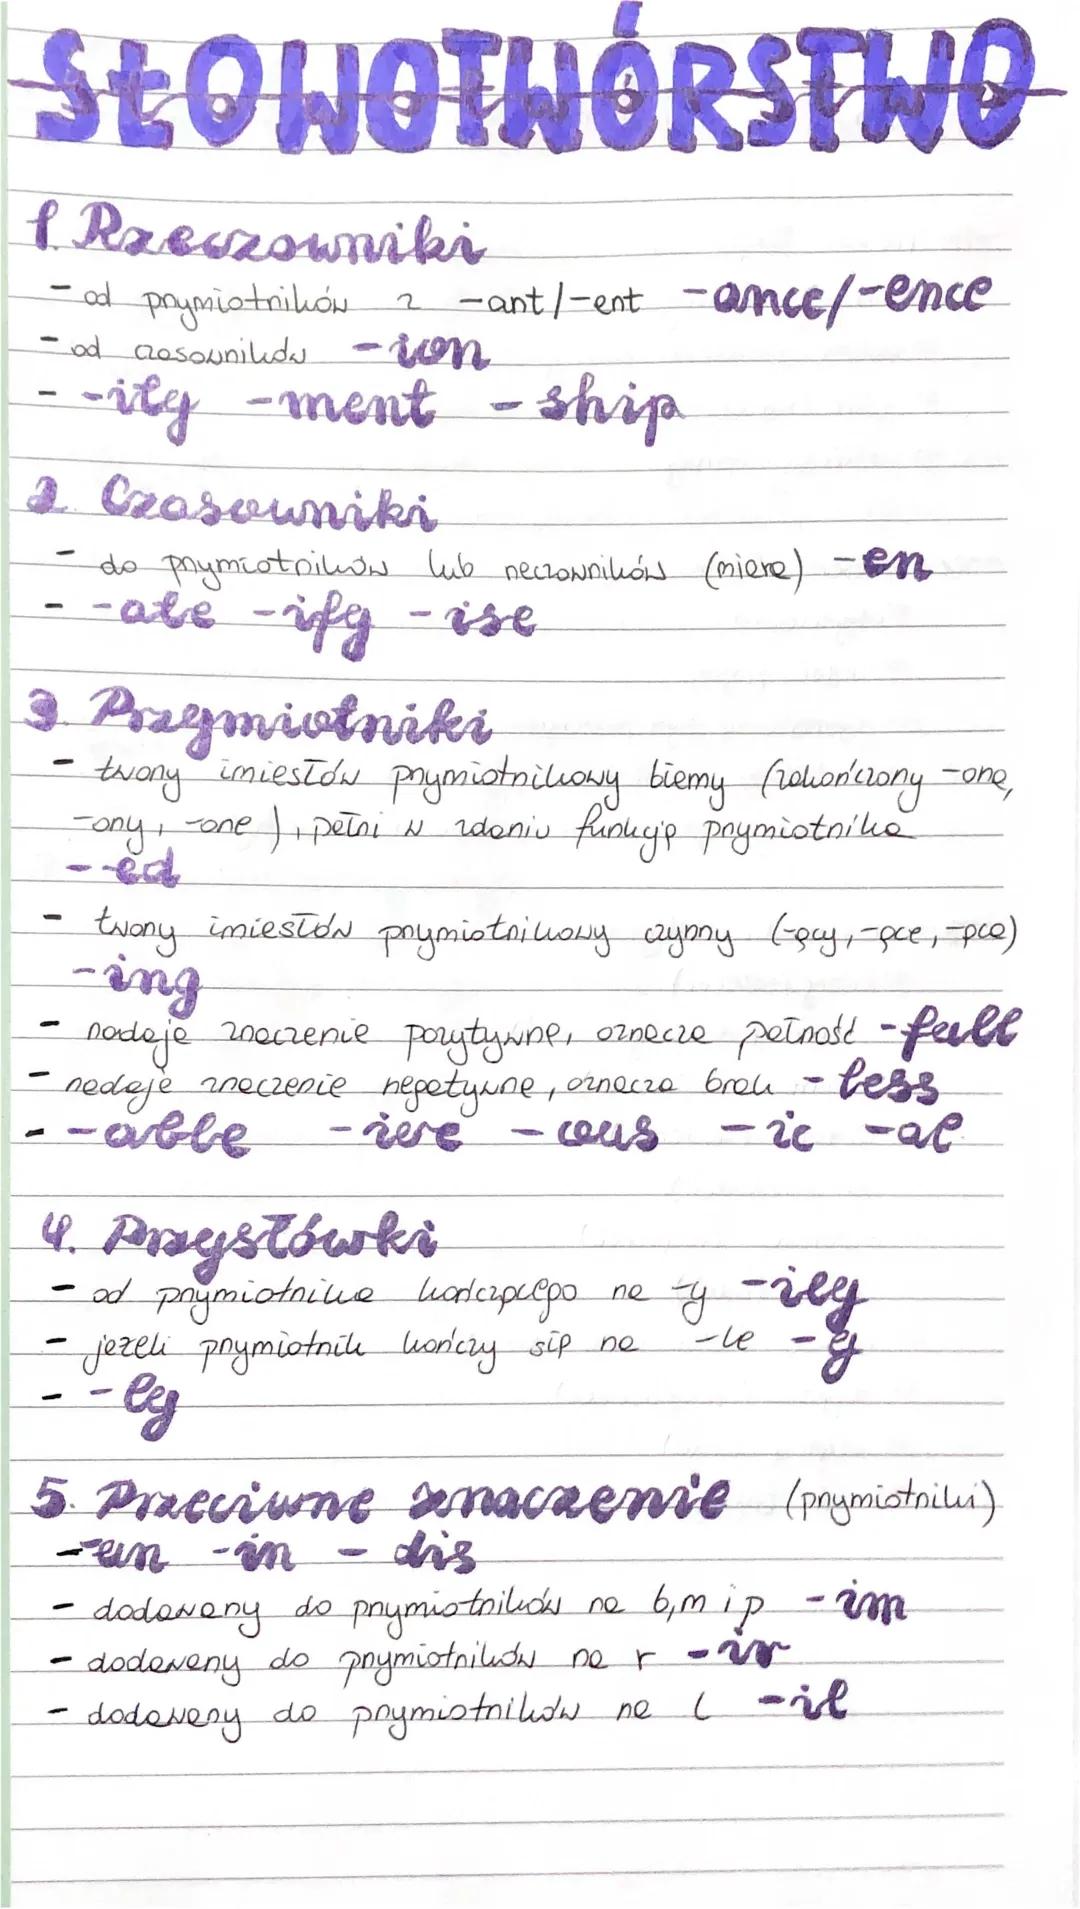 SŁOWOTWÓRSTWO
1. Rzeczowniki
- od przymiotników z -ant/-ent -ance/-ence
- od czasowników -ion
- -ity -ment -ship
2. Czasowniki
- do przymiotników lub rzeczowników (miara) -en
- -ate -ify -ise
3. Przymiotniki
- tworzy imiesłów przymiotnikowy bierny (zakończony -ona,
-ony, -one), pełni w zdaniu funkcję przymiotnika
- -ed
- tworzy imiesłów przymiotnikowy czynny (-ący, -ące, -ąca)
-ing
- nadaje znaczenie pozytywne, oznacza pełność -full
- nadaje znaczenie negatywne, oznacza brak -less
- -able -ive -ous -ic -al
4. Przysłówki
- od przymiotnika kończącego na -y -ily
- jeżeli przymiotnik kończy się na -le -y
- -ly
5. Przeciwne znaczenie (przymiotniki)
- -un -in -dis
- dodawany do przymiotników na b, m i p -im
- dodawany do przymiotników na r -ir
- dodawany do przymiotników na l -il